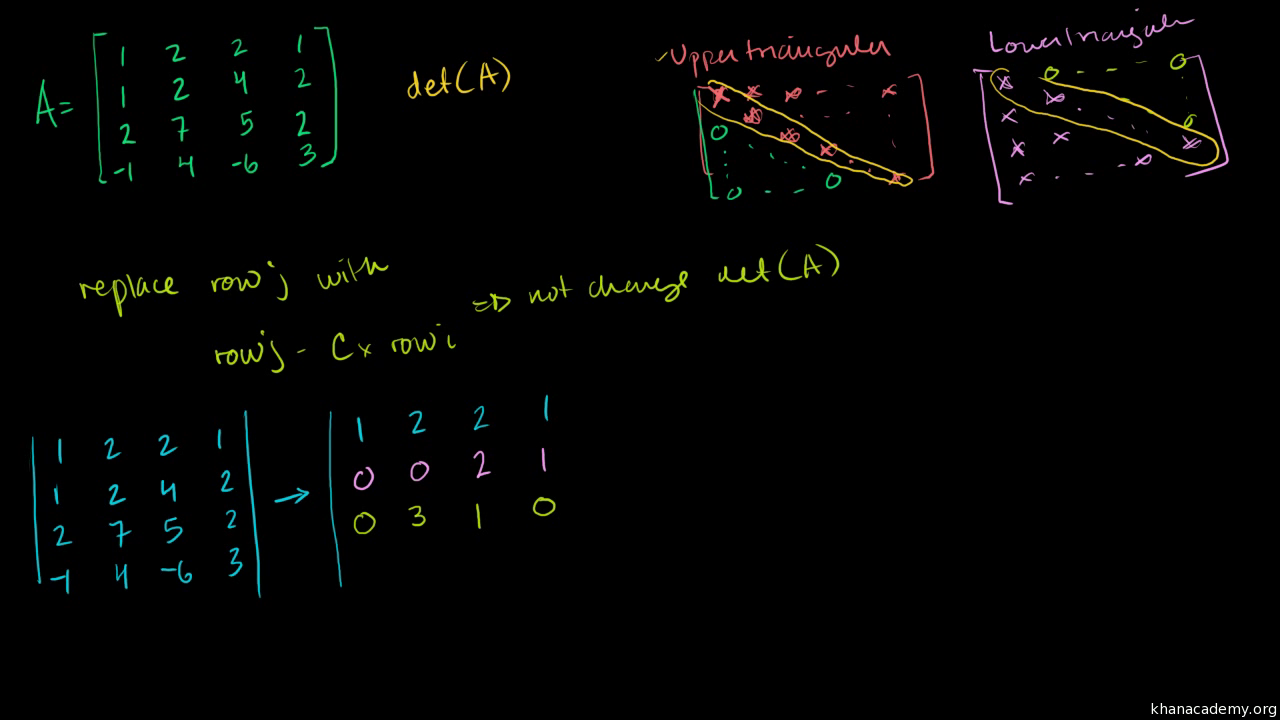 A = [ 1 2 2 1
1 2 4 2
2 7 5 2
-1 4 -6 3 ]
det(A)
Upper triangular
x x x - · · x
0 x · · · ·
: x ·
: · · · x · :
0 - - 0 x
Lower triangular
x 0 - - 0
x x · · :
x x · · · 0
x x
x · - - x
replace row j with
row j - C x row i
=> not change det(A)
| 1 2 2 1 |
| 1 2 4 2 |
| 2 7 5 2 |
| -1 4 -6 3 |
→
| 1 2 2 1
| 0 0 2 1
| 0 3 1 0
khanacademy.org